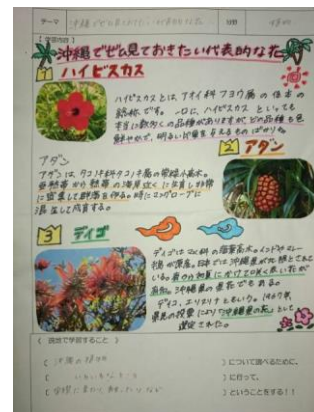 テーマ 沖縄でぜひ見ておきたい代表的な花 分野 植物
( 学習内容 )
沖縄でぜひ見ておきたい代表的な花
1 ハイビスカス
ハイビスカスとは、アオイ科フヨウ属の低木の
総称です。一口に、ハイビスカスといっても
本当に数多くの品種がありますが、どの品種も色
鮮やかで、明るい印象を与えるものばかり。
2 アダン
アダン
アダンは、タコノキ科タコノキ属の常緑小高木。
亜熱帯から熱帯の海岸近くに生育し、非常
に密集して群落を作る。時にマングローブに
混生して成育する。
3 デイゴ
デイゴはマメ科の落葉高木。インドやマレー
半島が原産。日本では沖縄県が北限とされて
いる。春から初夏にかけての咲く赤い花が
有名。沖縄県の県花でもある。
デイコ、エリスリナともいう。1967年、
県民の投票により「沖縄県の花」として
選定された。
( 現地で学習すること )
( 沖縄の植物 ) について調べるために、
( いろいろなところ ) に行って、
( 実際に ) ということをする!!